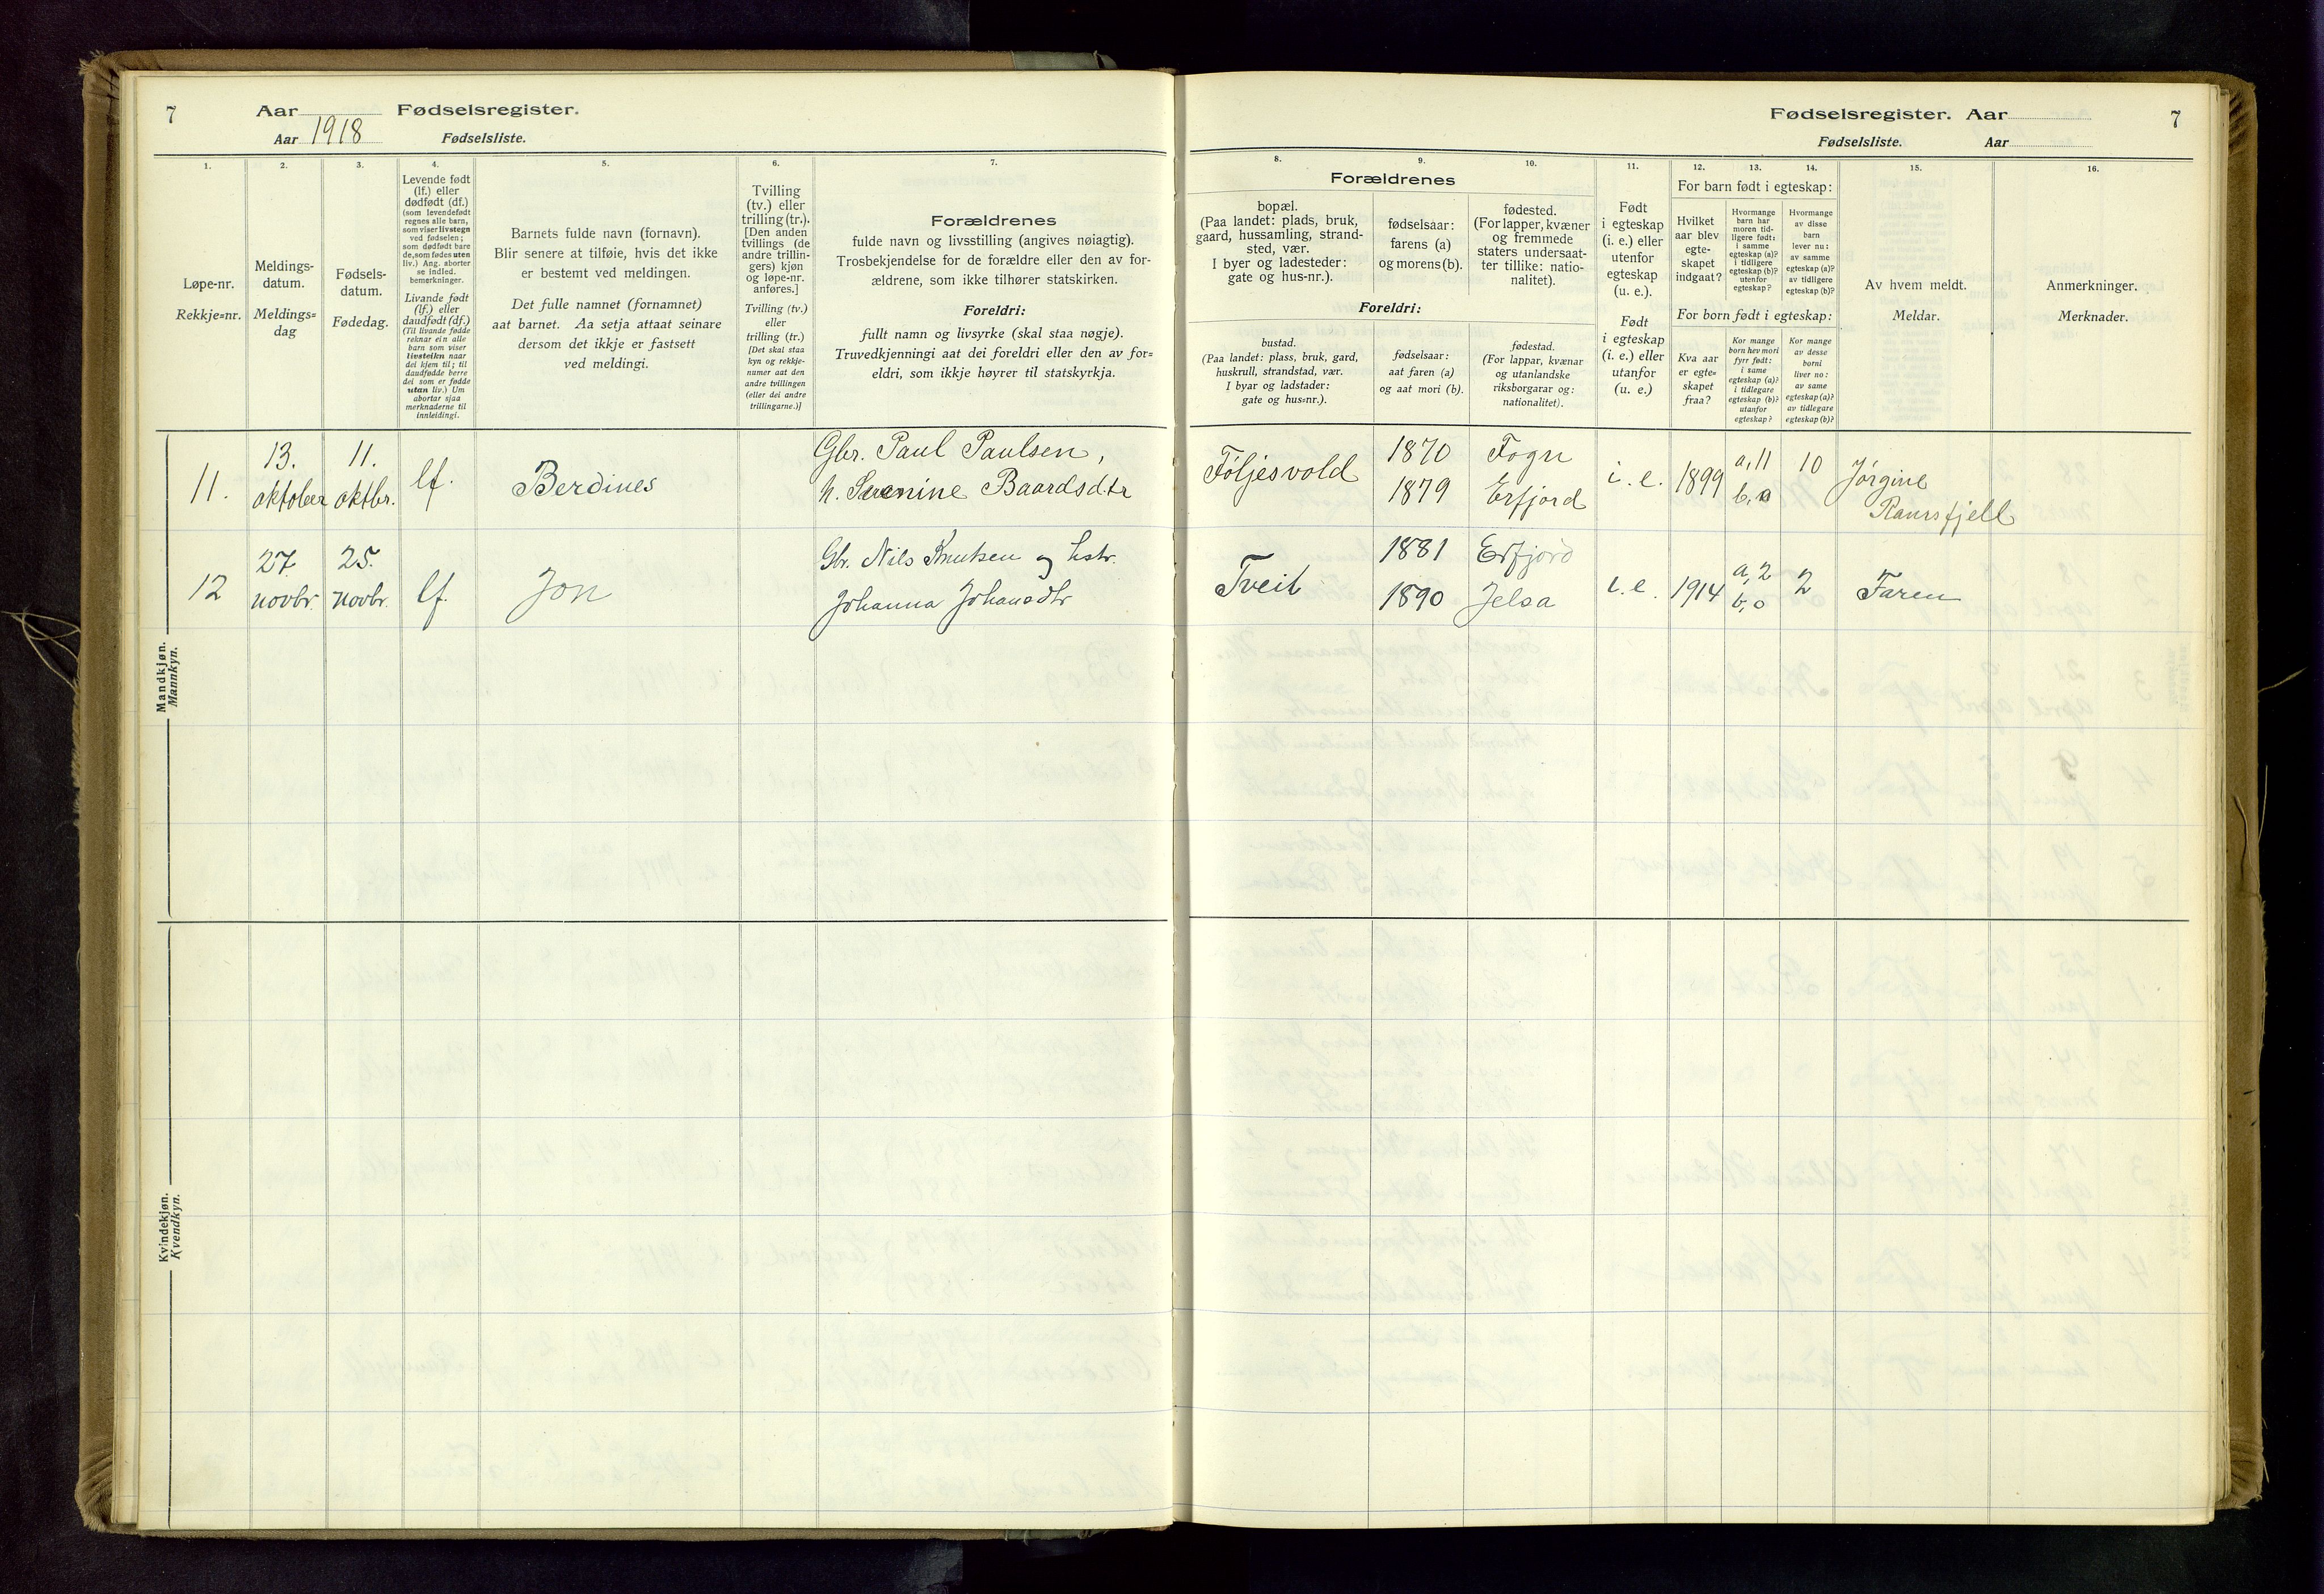 7
Aar
Fødselsregister.
Aar 1918
Fødselsliste.
1.
Løpe-nr.
Rekkje=nr.
2.
Meldings-
datum.
Meldings=
dag
3.
Fødsels-
datum.
Fødedag.
4.
Levende født
(lf.) eller
dødfødt (df.)
(som levendefødt
regnes alle barn,
som viser livstegn
ved fødselen;
som dødfødt bare
de, som fødes uten
liv.) Ang. aborter
se indled.
bemerkninger.
Livande født
(lf.) eller
daudfødt (df.)
(Til livande fødde
reknar ein alle
barn som viser
livsteikn naar
dei kjem til; til
daudfødde berre
dei som er fødde
utan liv.) Um
abortar sjaa
merknaderne til
innleidingi.
5.
Barnets fulde navn (fornavn).
Blir senere at tilføie, hvis det ikke
er bestemt ved meldingen.
Det fulle namnet (fornamnet)
aat barnet. Aa setja attaat seinare
dersom det ikkje er fastsett
ved meldingi.
6.
Tvilling
(tv.) eller
trilling (tr.).
[Den anden
tvillings (de
andre trillin-
gers) kjøn
og løpe-nr.
anføres.]
Tvilling (tv.)
eller
trilling (tr.)
[Det skal staa
kyn og rekkje-
numer aat den
andre tvillingen
(eller dei andre
trillingarne.)]
7.
Forældrenes
fulde navn og livsstilling (angives nøiagtig).
Trosbekjendelse for de forældre eller den av for-
ældrene, som ikke tilhører statskirken.
Foreldri:
fullt namn og livsyrke (skal staa nøgje).
Truvedkjenningi aat dei foreldri eller den av for=
eldri, som ikkje høyrer til statskyrkja.
Mandkjøn.
Mannkyn.
11.
13.
oktober
11.
oktbr.
lf.
Berdines
Gbr. Paul Paulsen,
h. Serenine Baardsdtr
12
27.
novbr.
25.
novbr.
lf.
Jon
Gbr. Nils Knutsen og hstr.
Johanna Johansdtr
Kvindekjøn.
Kvendkyn.
Fødselsregister. Aar
7
Fødselsliste.
Aar
8.
9.
10.
Forældrenes
bopæl.
(Paa landet: plads, bruk,
gaard, hussamling, strand-
sted, vær.
I byer og ladesteder:
gate og hus-nr.).
fødselsaar:
farens (a)
og morens (b).
fødested.
(For lapper, kvæner
og fremmede
staters undersaat-
ter tillike: natio-
nalitet).
Foreldri:
bustad.
(Paa landet: plass, bruk, gard,
huskrull, strandstad, vær.
I byar og ladstader:
gate og hus=nr.).
fødselsaar:
aat faren (a)
og aat mori (b).
fødestad.
(For lappar, kvænar
og utanlandske
riksborgarar og:
nationalitet).
11.
Født
i egteskap
(i. e.) eller
utenfor
egteskap
(u. e.).
Født
i egteskap
(i. e.) eller
utanfor
(u. e.)
12.
13.
14.
For barn født i egteskap:
Hvilket
aar blev
egte-
skapet
indgaat?
Hvormange
barn har
moren tid-
ligere født:
i samme
egteskap (a)?
i tidligere
egteskap (b)?
utenfor
egteskap?
Hvormange
av disse
barn
lever nu:
av samme
egteskap (a)?
av tidligere
egteskap (b)?
For born født i egteskap:
Kva aar
er egte=
skapet
fraa?
Kor mange
born hev mori
fyrr født:
i same
egteskap (a)?
i tidlegare
egteskap (b)?
utanfor
egteskap?
Kor mange
av desse
borni
liver no:
av same
egteskap (a)?
av tidlegare
egteskap (b)?
15.
Av hvem meldt.
Meldar.
16.
Anmerkninger.
Merknader.
Føljesvold
1870
1879
Fogn
Erfjord
i. e.
1899
a, 11
b, o
10
Jørgine
Ramsfjell
Tveit
1881
1890
Erfjord
Jelsa
i. e.
1914
a, 2
b, o
2
Faren